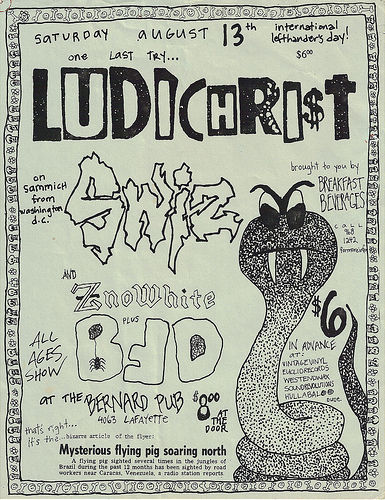 SATURDAY AUGUST 13th international
lefthander's day!
one LAST TRY...
$6⁰⁰
LUDICHRI$T
an
sammich
from
washington
d.c.
SWIZ
brought to you by
BREAKFAST
BEVERAGES
CALL
AND
ZnoWhite
PLUS
BFD
ALL
AGES
SHOW
$6
IN ADVANCE
at:
VINTAGE VINYL
EUCLID RECORDS
WEST END WAX
SOUND REVOLUTIONS
HULLABALOO
DUDE
AT THE BERNARD PUB
4063 LAFAYETTE
$8⁰⁰
AT THE
DOOR
that's right...
it's the...bizarre article of the flyer:
Mysterious flying pig soaring north
A flying pig sighted several times in the jungles of
Brazil during the past 12 months has been sighted by road
workers near Caracas, Venezuela, a radio station reports.